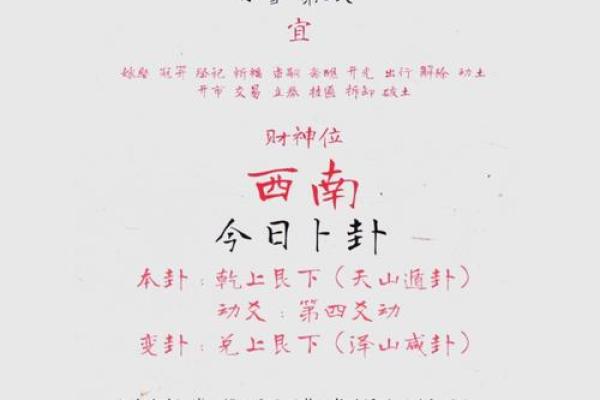 宜
嫁娶 冠笄 登记 祈福 斋醮 开光 出行 解除 动土
开市 交易 立券 挂匾 拆卸 破土
财神位
西南
今日卜卦
本卦：乾上艮下（天山遁卦）
动爻：第四爻动
变卦：兑上艮下（泽山咸卦）